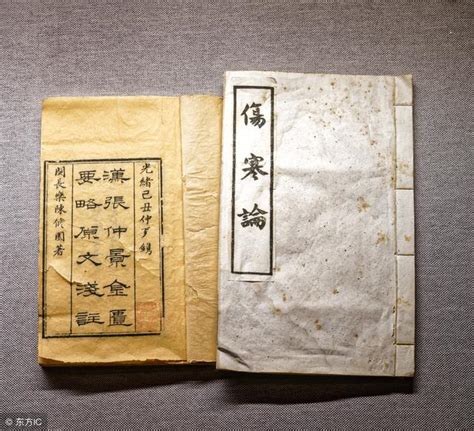 傷寒論
光緒己丑仲鐫
漢張仲景金匱
要略原文淺註
閩長樂陳修園著
© 东方IC